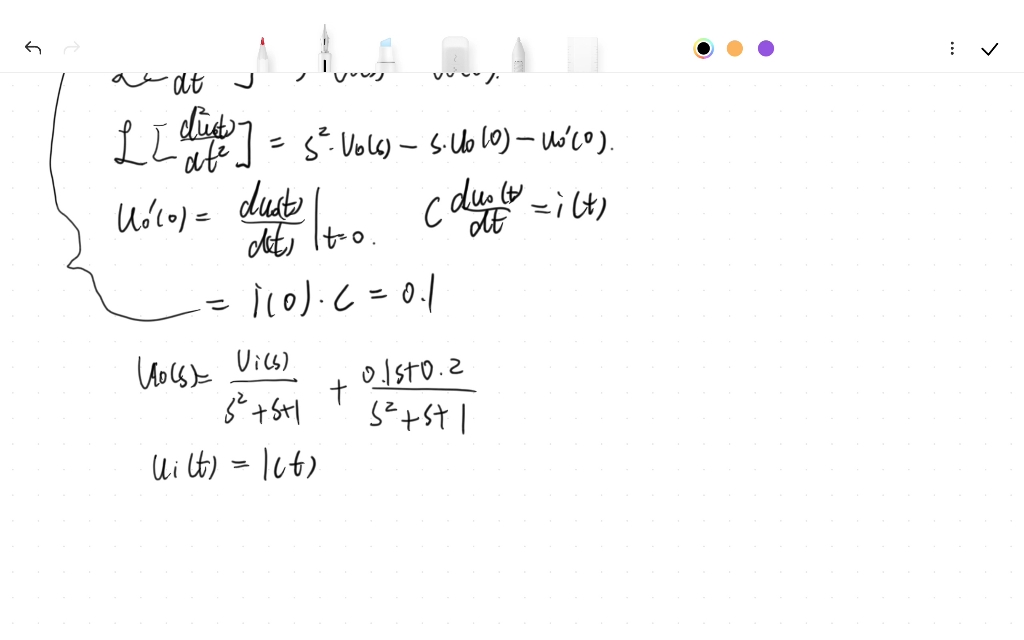 dt
L[d²u₀(t)/dt²] = s²·U₀(s) − s·U₀(0) − u₀'(0).
u₀'(0) = du₀(t)/d(t) |t=0. C du₀(t)/dt = i(t)
= i(0)·C = 0.1
U₀(s) = Ui(s)/s²+s+1 + 0.1s+0.2/s²+s+1
ui(t) = 1(t)